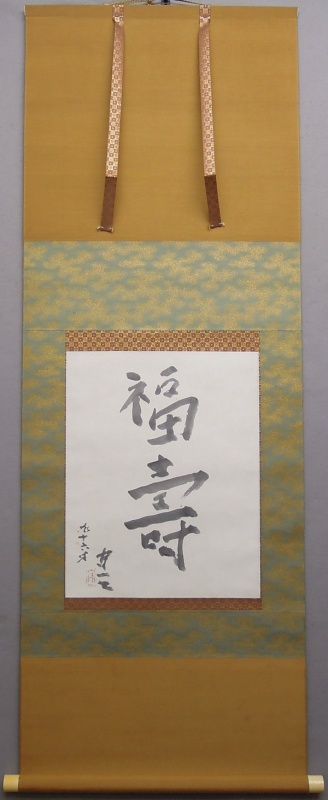 福壽
九十六才